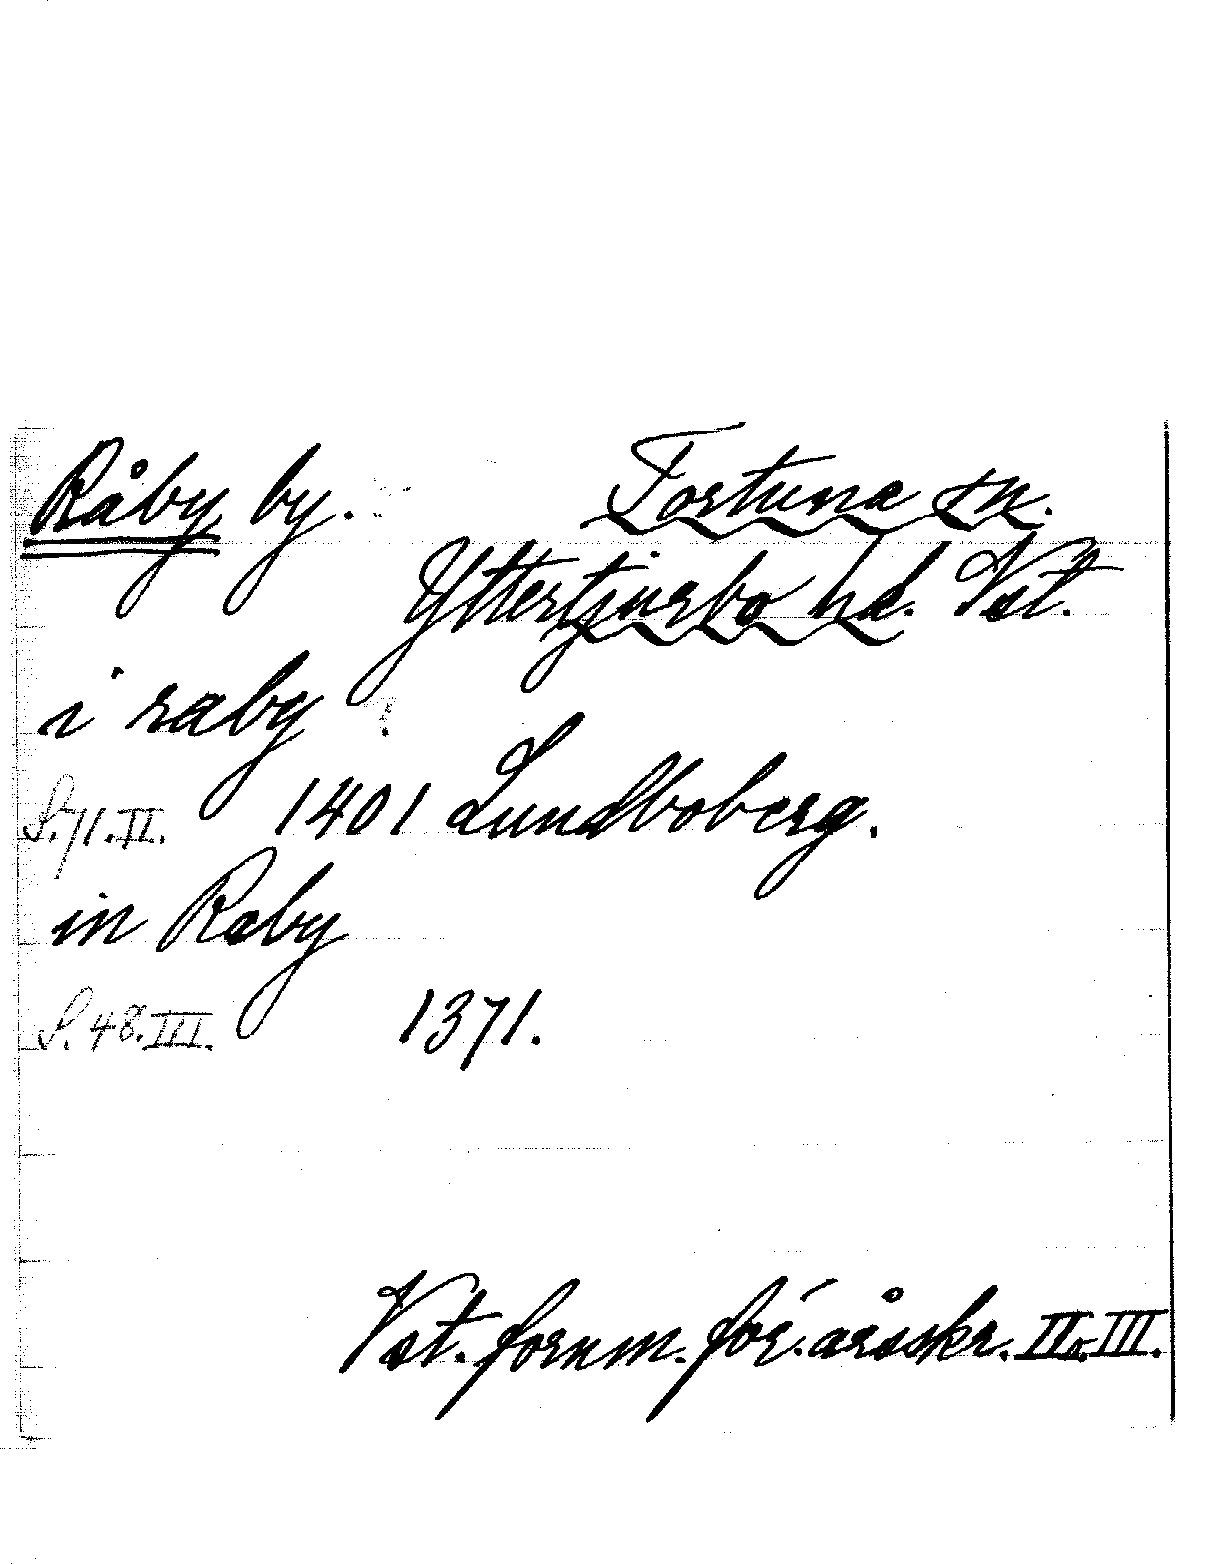 Råby by. Tortuna sn.
Yttertjurbo hd. Vst.
i raby
S. 71. II. 1401 Lundboberg.
in Raby
S. 48. III. 1371.
Vst. fornm. för. årsskr. II. III.